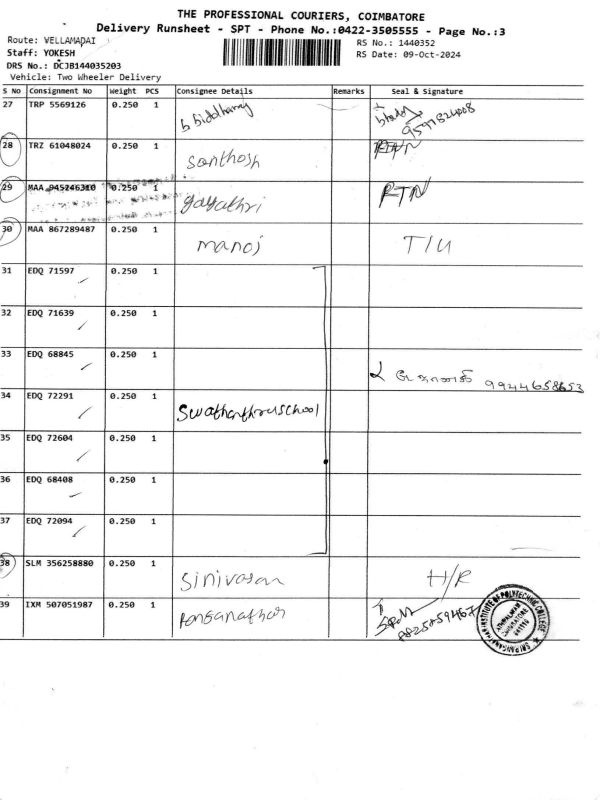 THE PROFESSIONAL COURIERS, COIMBATORE
Delivery Runsheet - SPT - Phone No.:0422-3505555 - Page No.:3
Route: VELLAMADAI
RS No.: 1440352
Staff: YOKESH
RS Date: 09-Oct-2024
DRS No.: DCJB144035203
Vehicle: Two Wheeler Delivery
S No Consignment No Weight PCS Consignee Details Remarks Seal & Signature
27 TRP 5569126 0.250 1
28 TRZ 61048024 0.250 1 Santhosh RTN
29 MAA 945246310 0.250 1 gayathri RTN
30 MAA 867289487 0.250 1 manoj T/U
31 EDQ 71597 0.250 1
32 EDQ 71639 0.250 1
33 EDQ 68845 0.250 1 9944658653
34 EDQ 72291 0.250 1
35 EDQ 72604 0.250 1
36 EDQ 68408 0.250 1
37 EDQ 72094 0.250 1
38 SLM 356258880 0.250 1 Sinivasan H/R
39 IXM 507051987 0.250 1
SRI RANGANATHAR INSTITUTE OF POLYTECHNIC COLLEGE